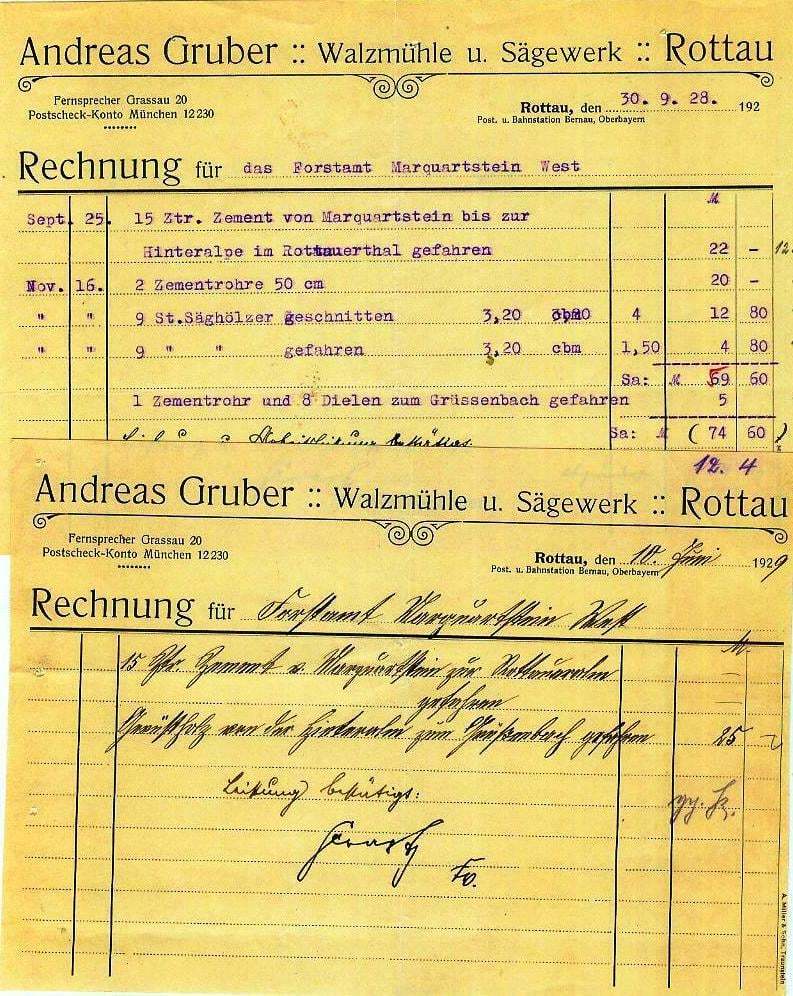 Andreas Gruber :: Walzmühle u. Sägewerk :: Rottau
Fernsprecher Grassau 20
Postscheck-Konto München 12230
Rottau, den 30. 9. 28. 192
Post. u. Bahnstation Bernau, Oberbayern
Rechnung für das Forstamt Marquartstein West
M
Sept. 25. 15 Ztr. Zement von Marquartstein bis zur
Hinteralpe im Rottauerthal gefahren 22 - 12.
Nov. 16. 2 Zementrohre 50 cm 20 -
" " 9 St.Säghölzer geschnitten 3,20 cbm 4 12 80
" " 9 " " gefahren 3,20 cbm 1,50 4 80
Sa: M 59 60
1 Zementrohr und 8 Dielen zum Grüssenbach gefahren 5
Sa: M (74 60)
12. 4
Andreas Gruber :: Walzmühle u. Sägewerk :: Rottau
Fernsprecher Grassau 20
Postscheck-Konto München 12230
Rottau, den 10. Juni 1929
Post. u. Bahnstation Bernau, Oberbayern
Rechnung für Forstamt Marquartstein West
M.
15 Ztr. Zement v. Marquartstein zur Rottaueralm
gefahren
Gerüstholz von der Hinteralm zum Grüßenbach gefahren 25 -
Leistung bestätigt:
Fv.
A. Miller & Sohn, Traunstein